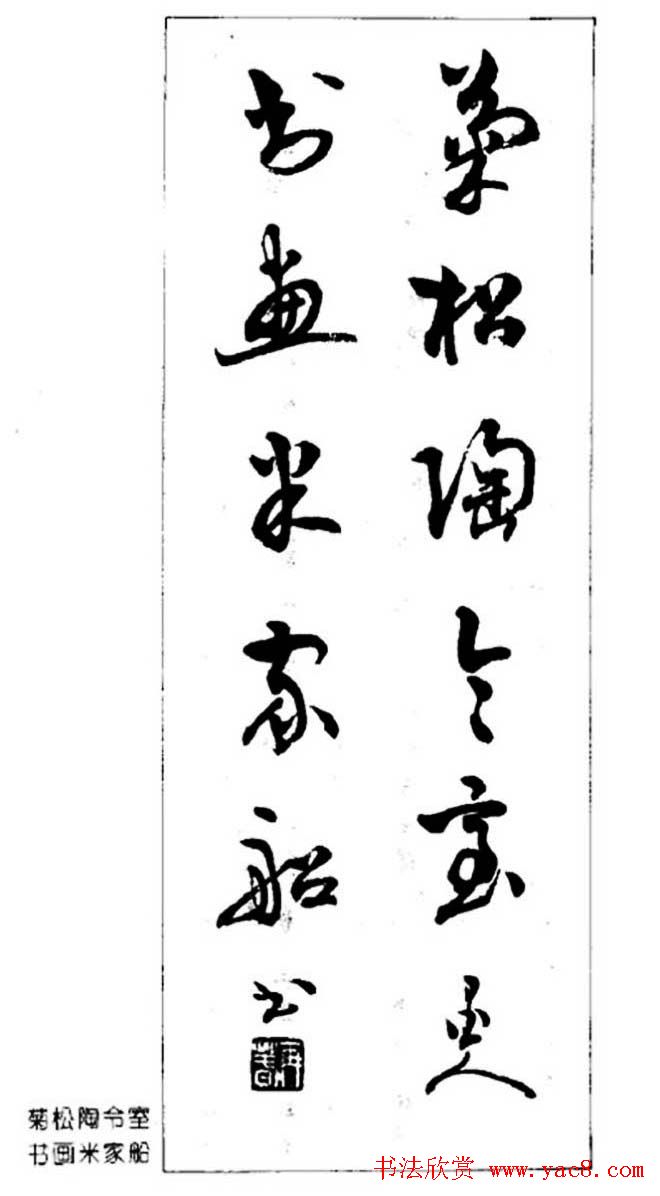 菊松陶令室
书画米家船 书
菊松陶令室
书画米家船
书法欣赏 www.yac8.com